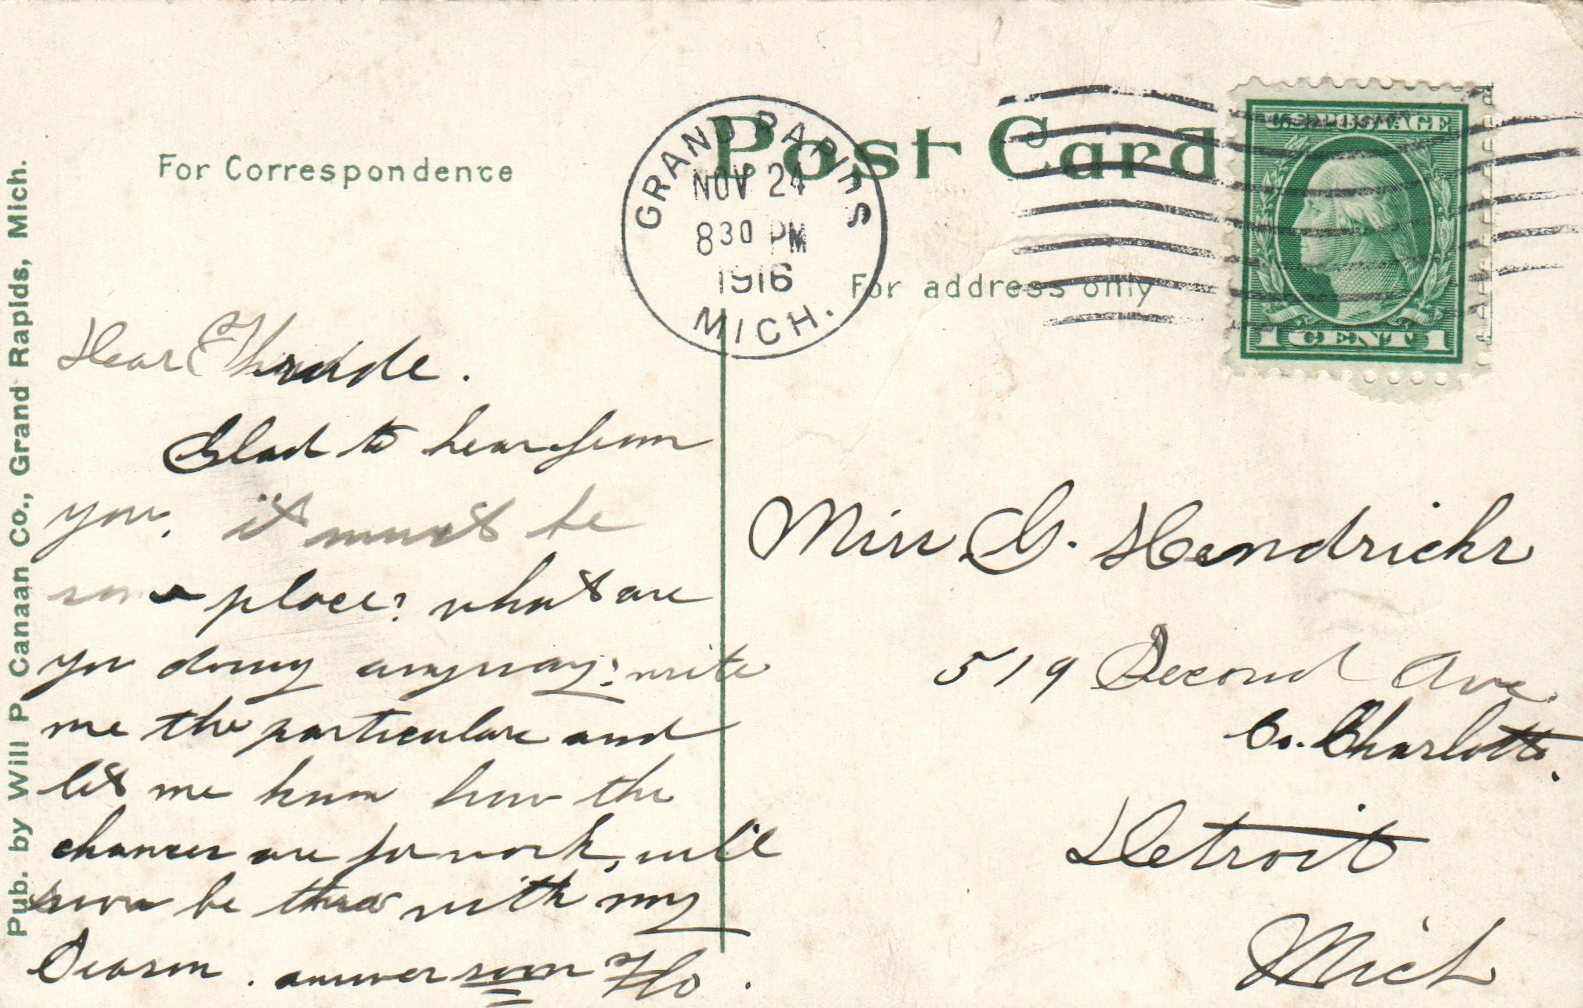 Post Card
For Correspondence
For address only
GRAND RAPIDS
NOV 24
8 30 PM
1916
MICH.
U.S. POSTAGE
1 CENT 1
Pub. by Will P. Canaan Co., Grand Rapids, Mich.
Dear
Glad to hear from
you, it must be
some place? what are
you doing anyway? write
me the particulars and
let me know how the
chances are for work, will
soon be there with my
Season. answer soon Flo.
Miss. G. Hendricks
519 Second Ave
Co. Charlotte.
Detroit
Mich